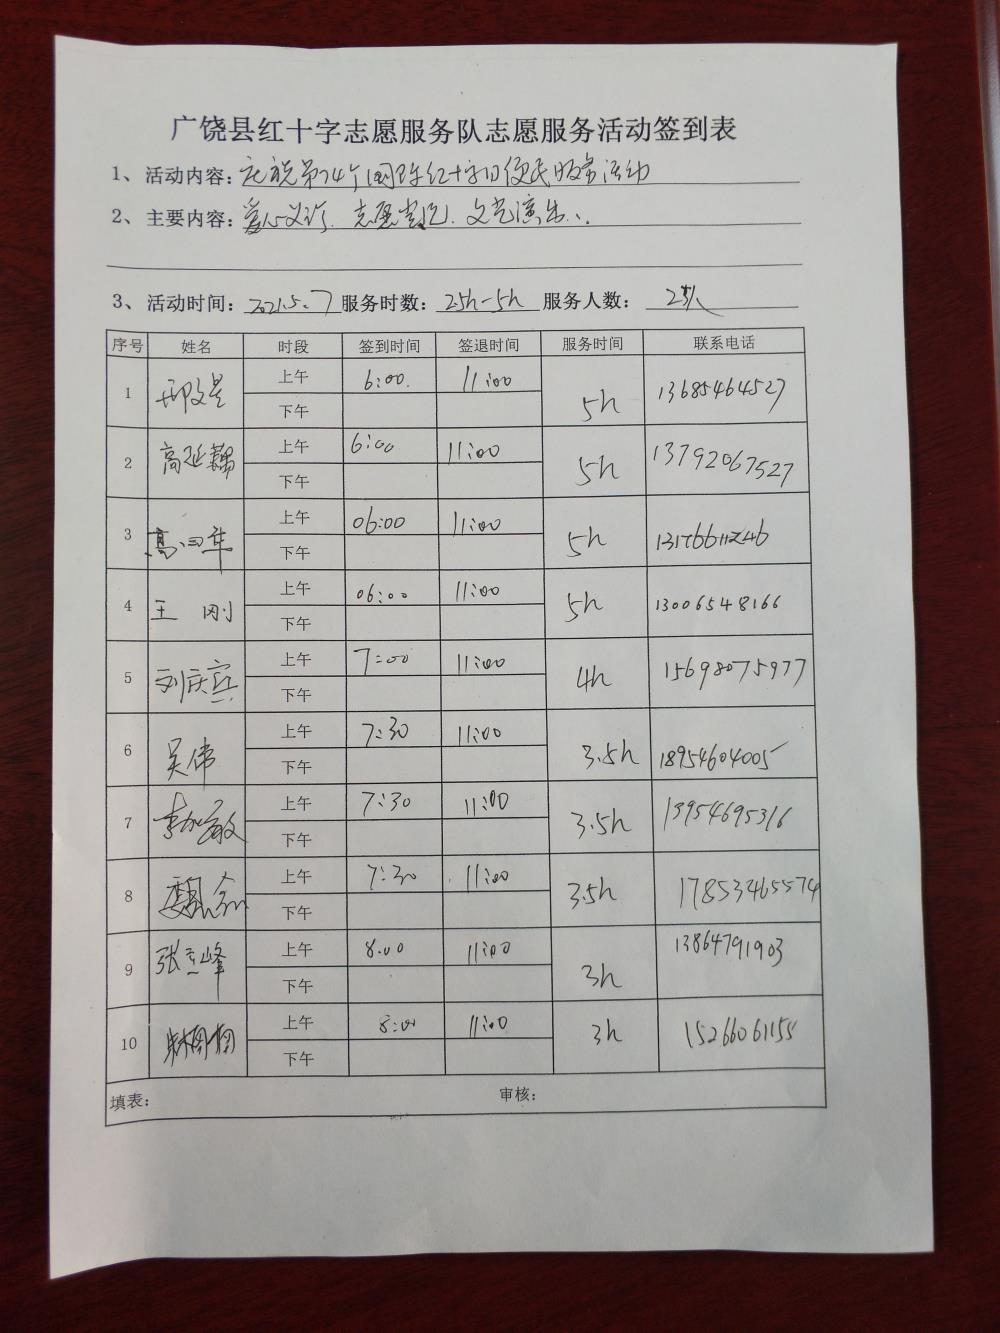 广饶县红十字志愿服务队志愿服务活动签到表
1、活动内容：庆祝第74个国际红十字日便民服务活动
2、主要内容：爱心义诊、志愿登记、文艺演出、
3、活动时间：2021.5.7 服务时数：2.5h-5h 服务人数：
序号 姓名 时段 签到时间 签退时间 服务时间 联系电话
1 上午 6:00 11:00 5h 13685464527
下午
2 上午 6:00 11:00 5h 13792067527
下午
3 上午 06:00 11:00 5h
下午
4 王刚 上午 06:00 11:00 5h 13006548166
下午
5 刘庆宾 上午 7:00 11:00 4h 15698075977
下午
6 吴伟 上午 7:30 11:00 3.5h 18954604005
下午
7 上午 7:30 11:00 3.5h 13954695316
下午
8 上午 7:30 11:00 3.5h 17853465574
下午
9 上午 8:00 11:00 3h 13864791903
下午
10 上午 8:00 11:00 3h 15266061155
下午
填表： 审核：